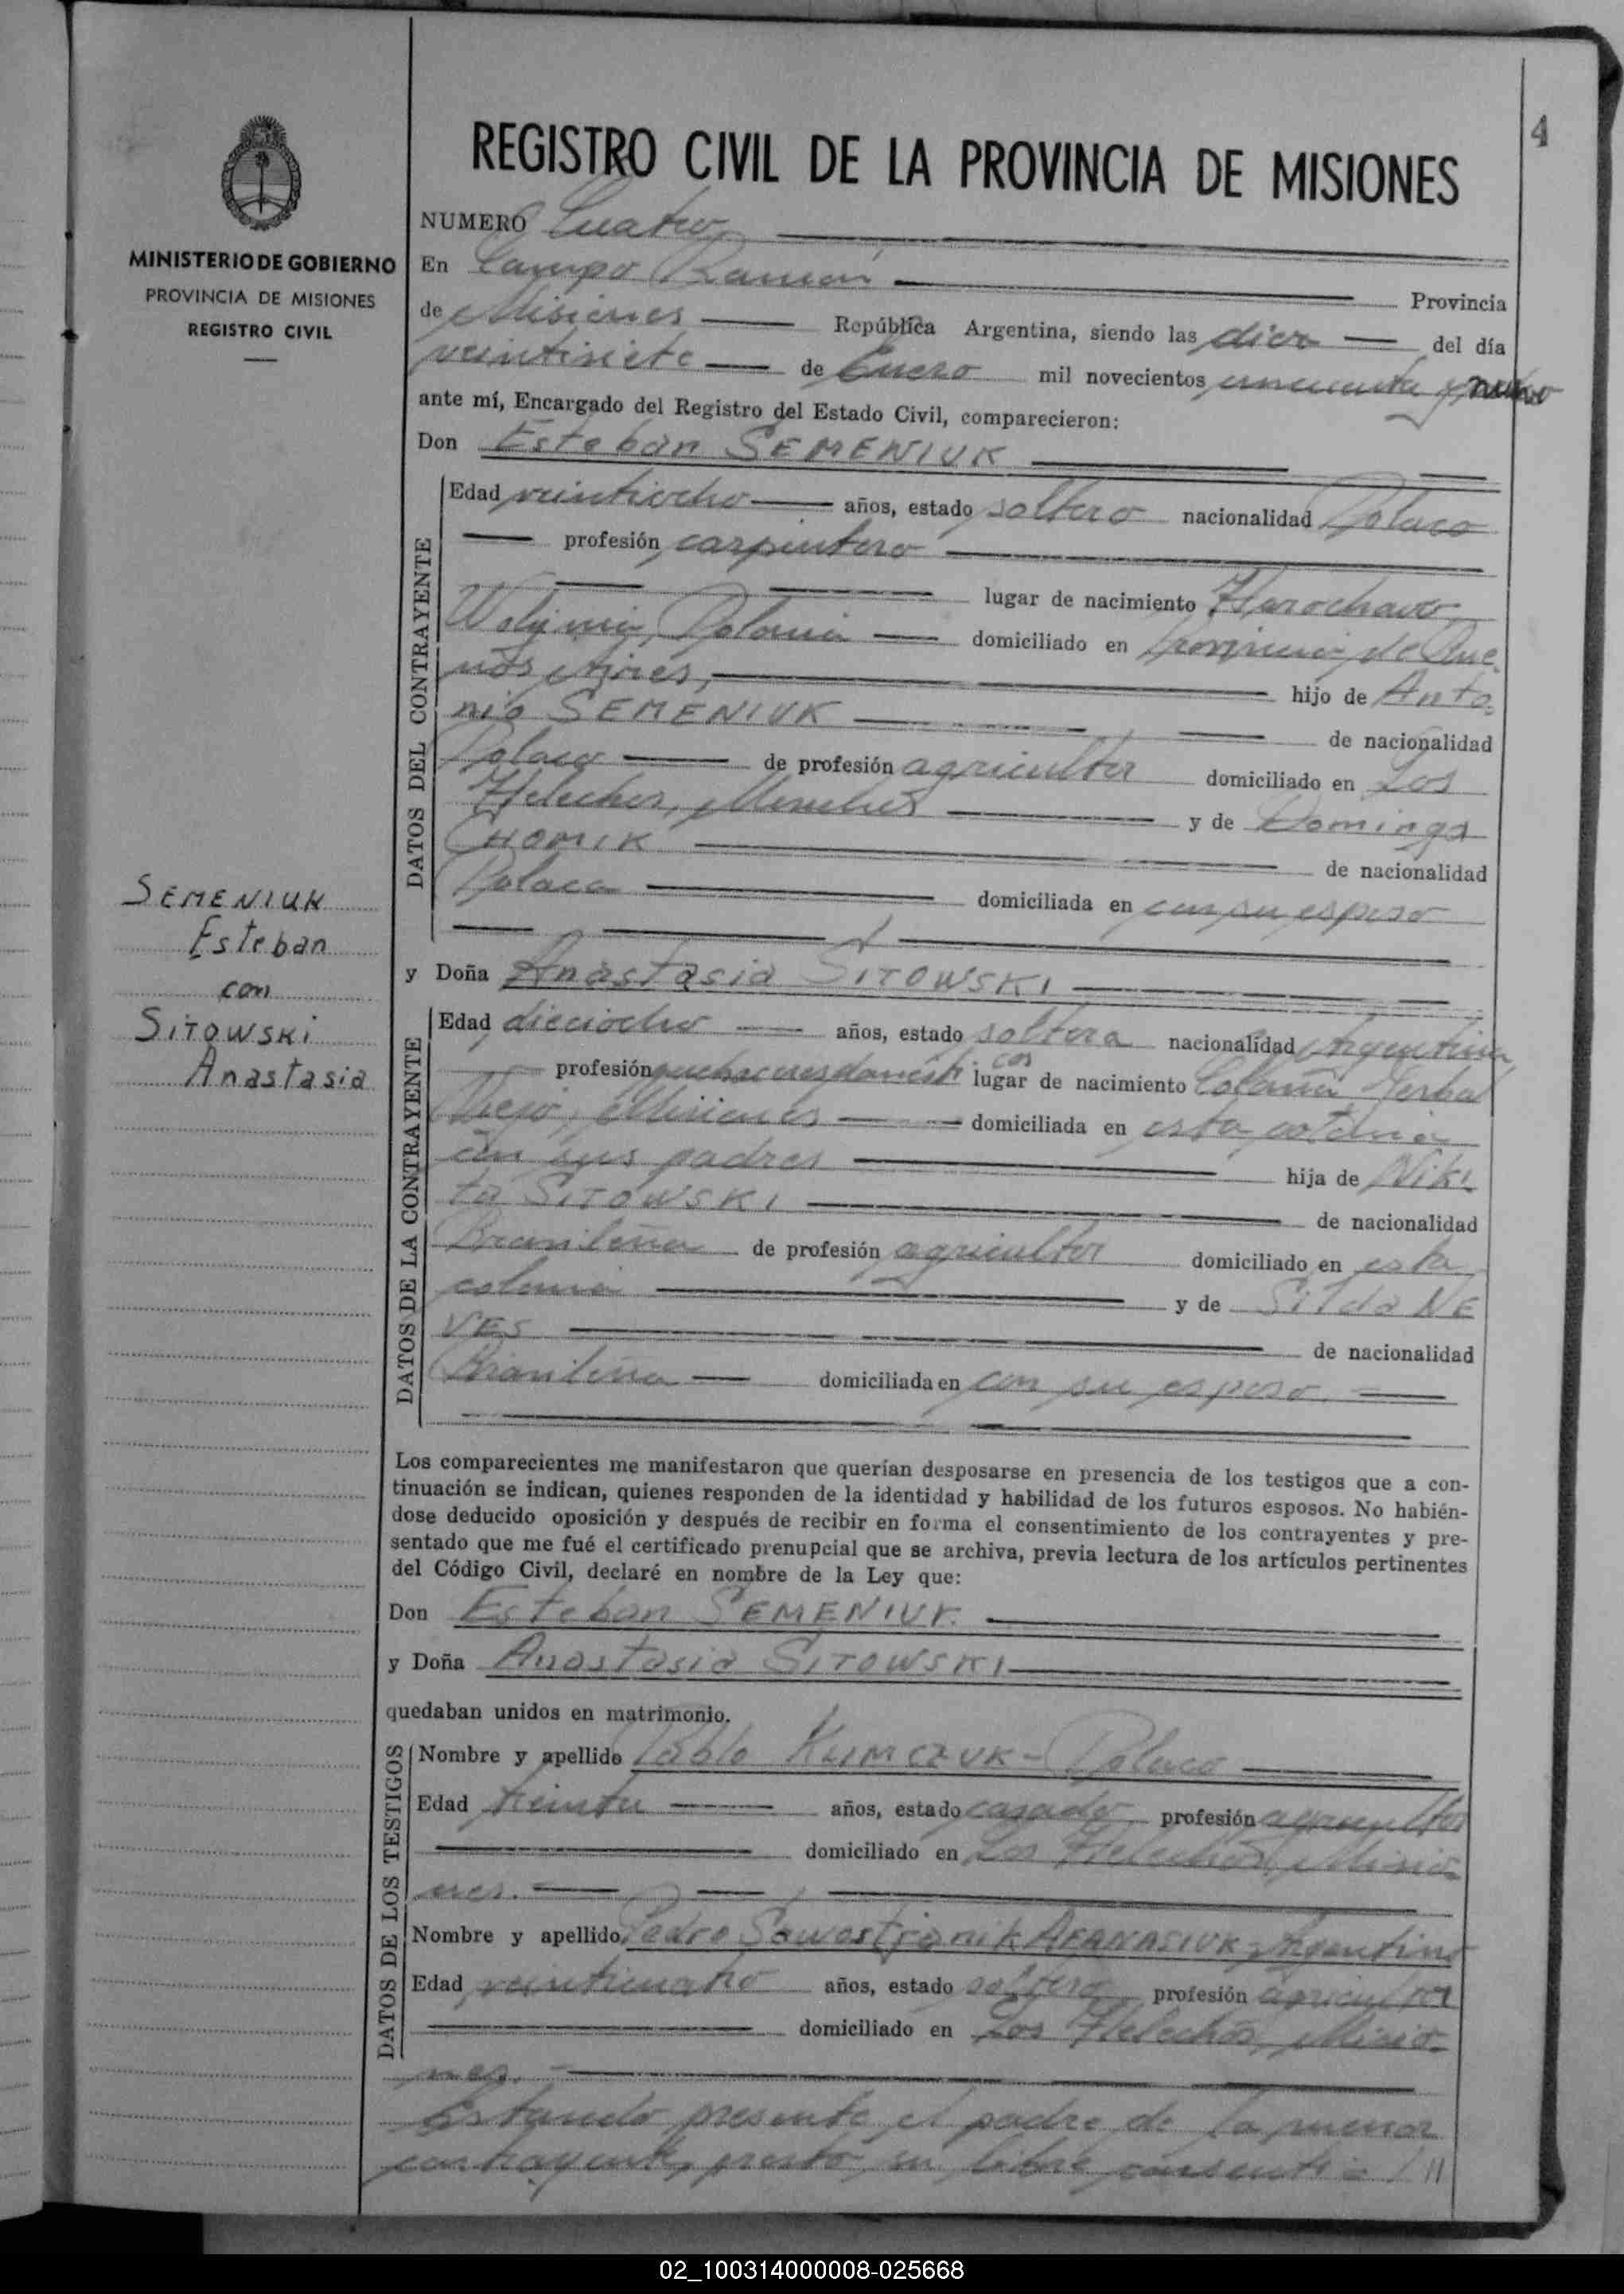 4
REGISTRO CIVIL DE LA PROVINCIA DE MISIONES
MINISTERIO DE GOBIERNO
PROVINCIA DE MISIONES
REGISTRO CIVIL
NUMERO Cuatro
En Campo Ramón Provincia
de Misiones República Argentina, siendo las diez del día
veintisiete de Enero mil novecientos cincuenta y nueve
ante mí, Encargado del Registro del Estado Civil, comparecieron:
Don Esteban SEMENIUK
DATOS DEL CONTRAYENTE
Edad veintiocho años, estado soltero nacionalidad Polaco
profesión carpintero
lugar de nacimiento
Polonia domiciliado en Provincia de Bue-
nos Aires, hijo de Anto-
nio SEMENIUK de nacionalidad
Polaco de profesión agricultor domiciliado en Los
Helechos, Misiones y de Dominga
CHOMIK de nacionalidad
Polaca domiciliada en con su esposo
SEMENIUK
Esteban
con
SITOWSKI
Anastasia
y Doña Anastasia SITOWSKI
DATOS DE LA CONTRAYENTE
Edad dieciocho años, estado soltera nacionalidad Argentina
profesión quehaceres domésticos lugar de nacimiento Colonia Yerbal
Viejo, Misiones domiciliada en esta colonia
con sus padres hija de Niki-
ta SITOWSKI de nacionalidad
Brasileña de profesión agricultor domiciliado en esta
colonia y de Silda NE
VES de nacionalidad
Brasileña domiciliada en con su esposo.
Los comparecientes me manifestaron que querían desposarse en presencia de los testigos que a con-
tinuación se indican, quienes responden de la identidad y habilidad de los futuros esposos. No habién-
dose deducido oposición y después de recibir en forma el consentimiento de los contrayentes y pre-
sentado que me fué el certificado prenupcial que se archiva, previa lectura de los artículos pertinentes
del Código Civil, declaré en nombre de la Ley que:
Don Esteban SEMENIUK
y Doña Anastasia SITOWSKI
quedaban unidos en matrimonio.
DATOS DE LOS TESTIGOS
Nombre y apellido Pablo KLIMCZUK - Polaco
Edad treinta años, estado casado profesión agricultor
domiciliado en Los Helechos, Misio-
nes.
Nombre y apellido Pedro Sawostjanik AFANASIUK - Argentino
Edad veinticuatro años, estado soltero profesión agricultor
domiciliado en Los Helechos, Misio-
nes.
Estando presente el padre de la menor
contrayente, prestó su libre consenti- ///
02_100314000008-025668